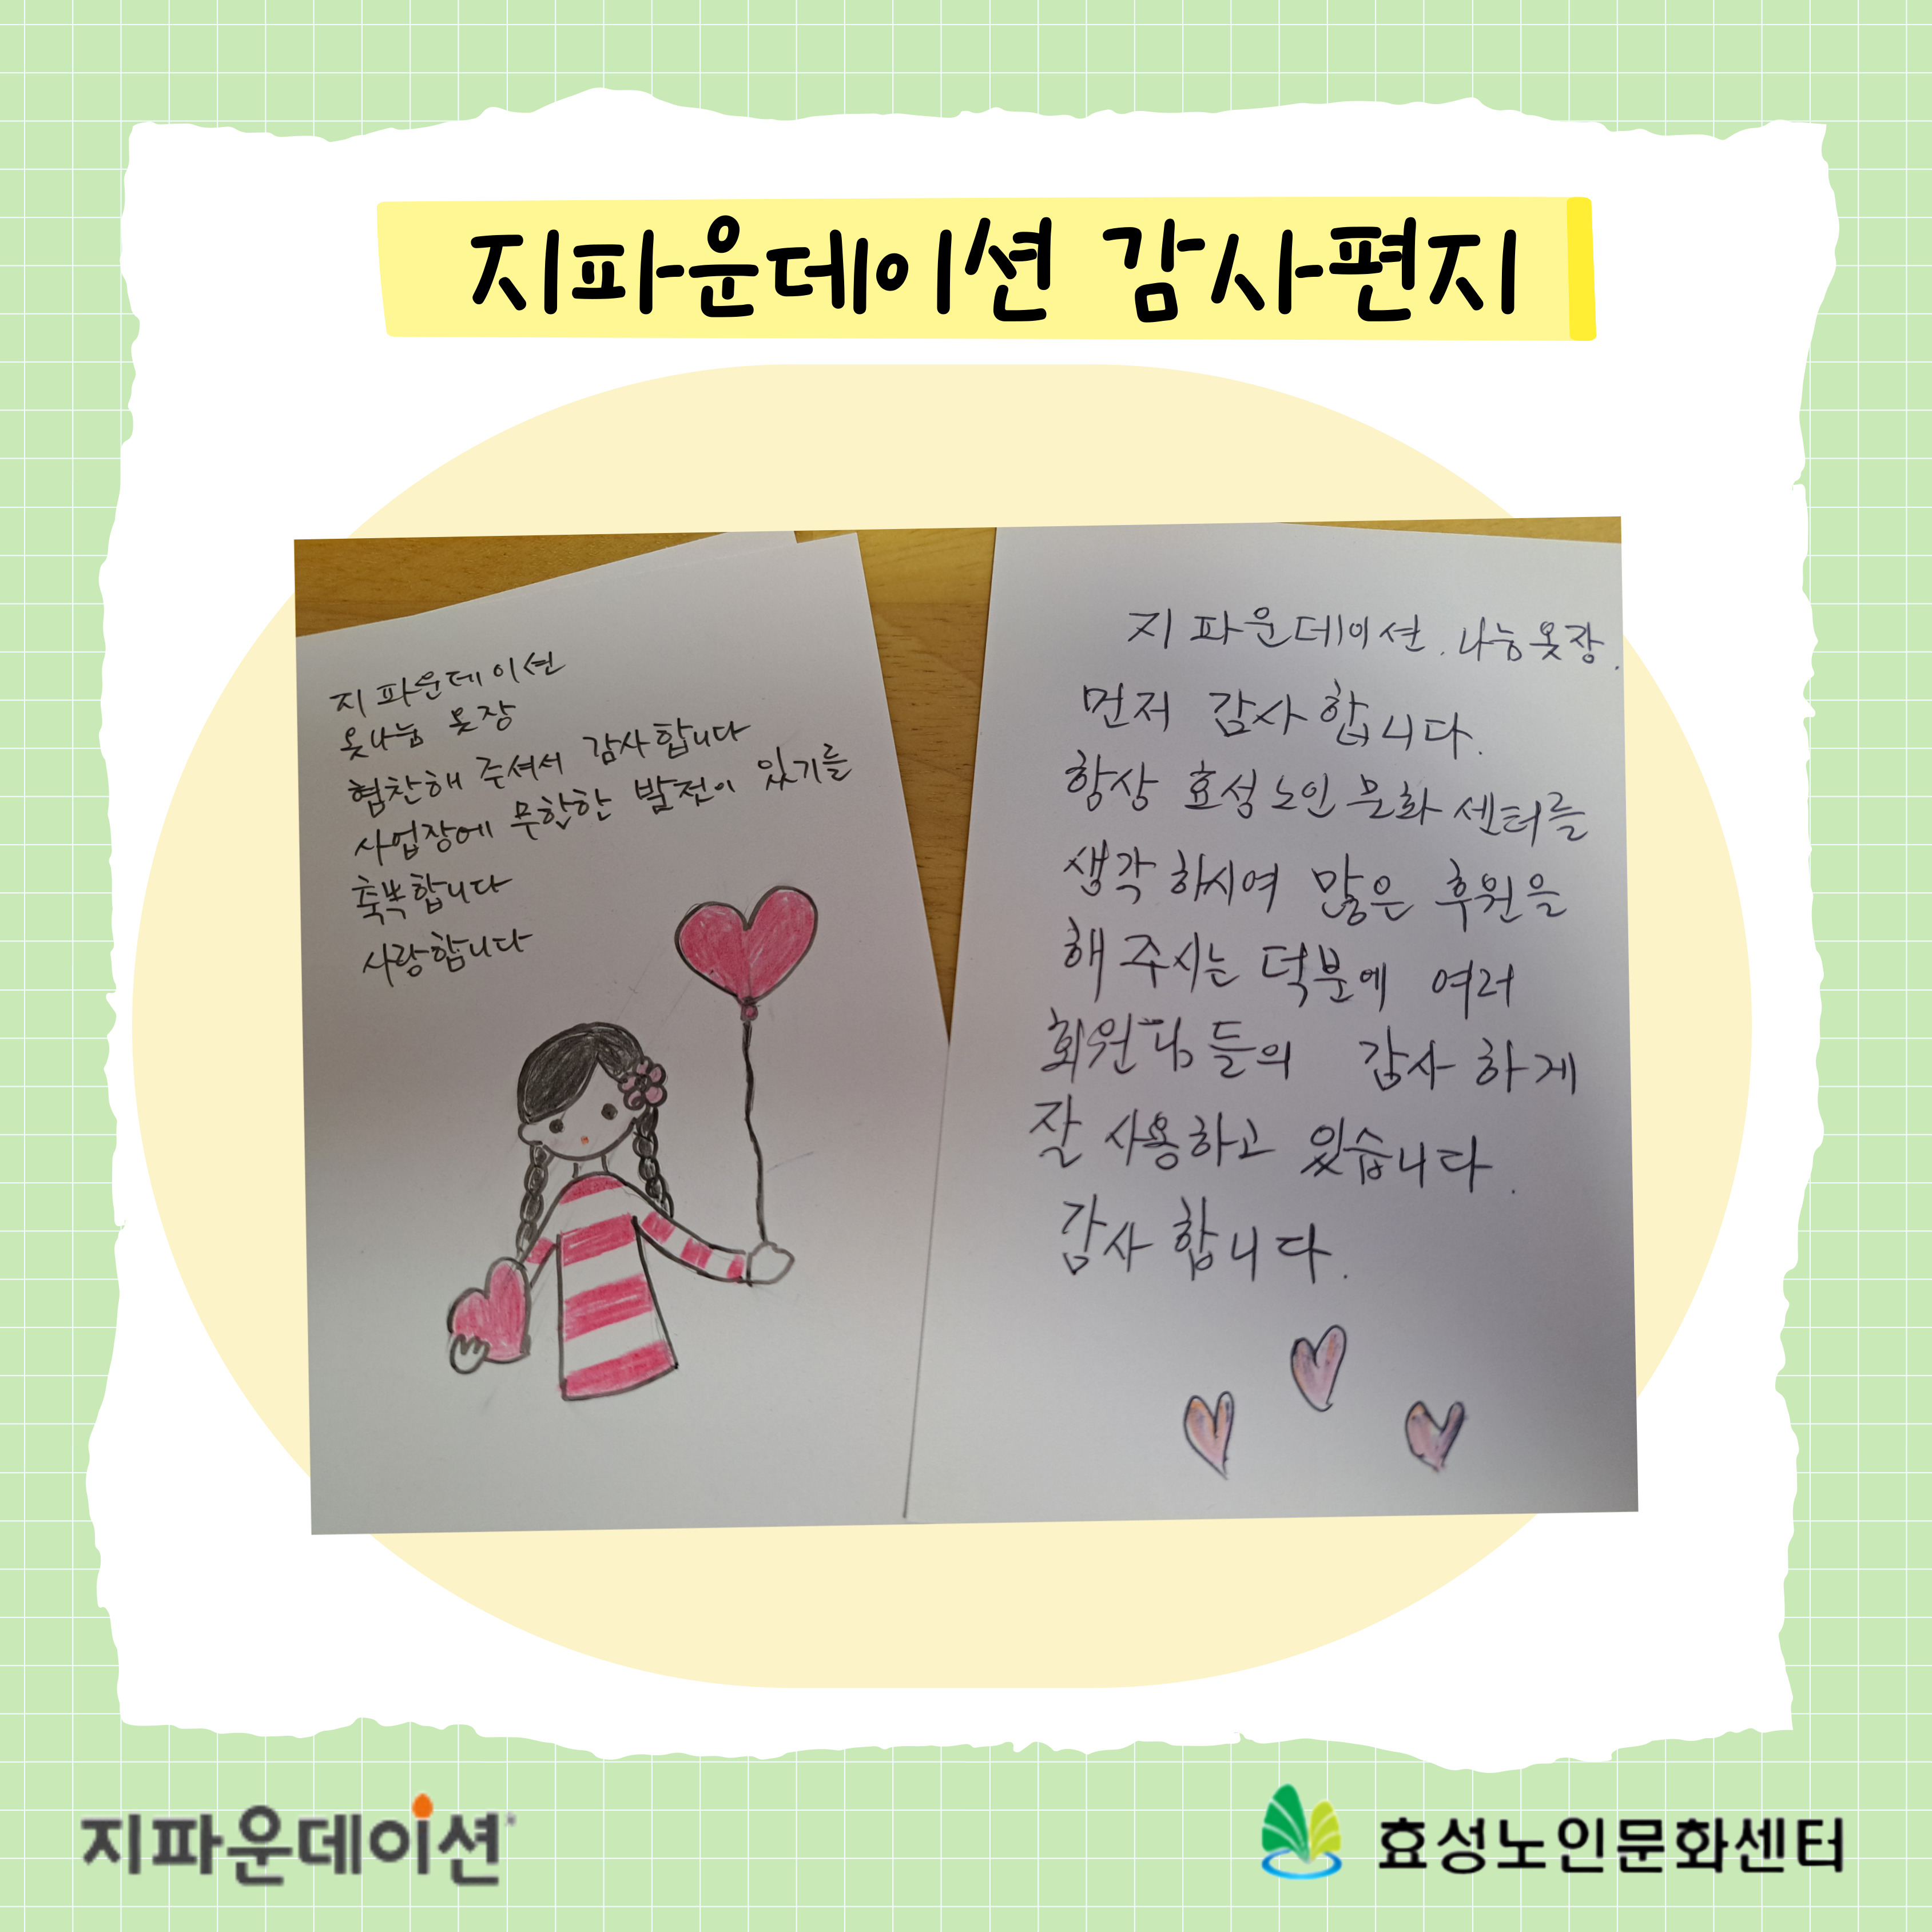 지파운데이션 감사편지
지파운데이션
옷나눔 옷장
협찬해 주셔서 감사합니다
사업장에 무한한 발전이 있기를
축복합니다
사랑합니다
지파운데이션. 나눔옷장.
먼저 감사합니다.
항상 효성노인문화센터를
생각하시여 많은 후원을
해주시는 덕분에 여러
회원님들의 감사하게
잘 사용하고 있습니다.
감사합니다.
지파운데이션
효성노인문화센터